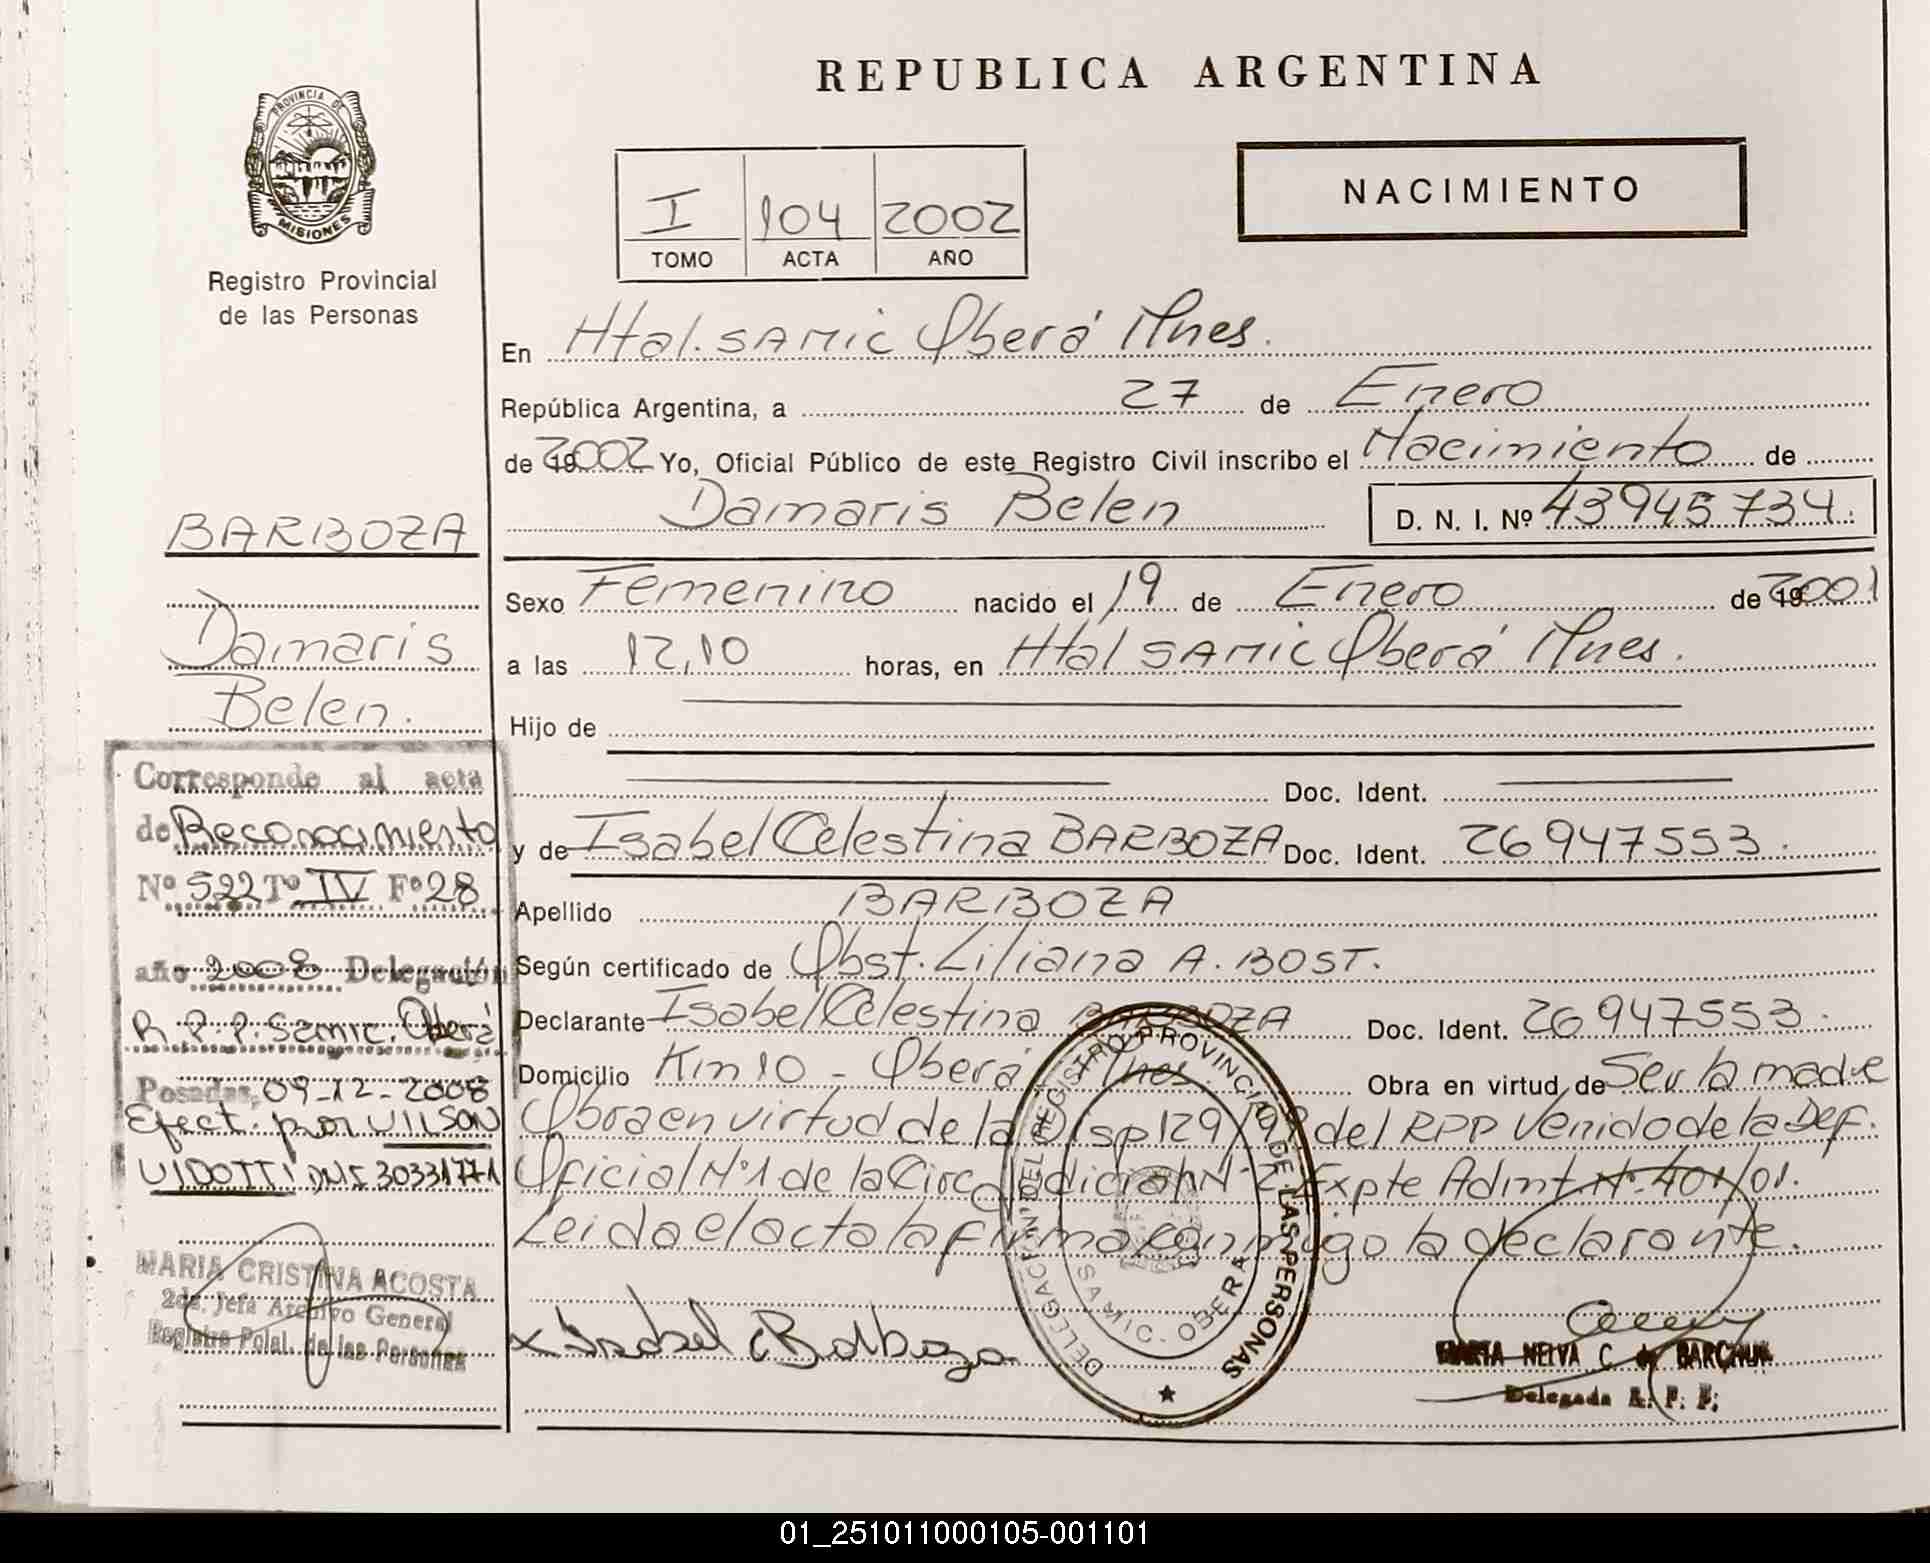 REPUBLICA ARGENTINA
PROVINCIA DE
MISIONES
Registro Provincial
de las Personas
I 104 2002
TOMO ACTA AÑO
NACIMIENTO
En Htal. SAMIC Oberá Mnes.
República Argentina, a 27 de Enero
de 2002 Yo, Oficial Público de este Registro Civil inscribo el Nacimiento de
Damaris Belen D. N. I. Nº 43945734.
Sexo Femenino nacido el 19 de Enero de 2001
a las 12,10 horas, en Htal SAMIC Oberá Mnes.
Hijo de
Doc. Ident.
y de Isabel Celestina BARBOZA Doc. Ident. 26947553.
Apellido BARBOZA
Según certificado de Obst. Liliana A. BOST.
Declarante Isabel Celestina BARBOZA Doc. Ident. 26947553.
Domicilio Km 10 - Oberá Mnes. Obra en virtud de Ser la madre
Obra en virtud de la Disp 129/ del RPP Venido de la Def.
Oficial Nº1 de la Circ Judicial Nº 2 Expte Admt. Nº 401/01.
Leida el acta la firma conmigo la declarante.
x Isabel C Barboza
DELEGACIÓN DEL REGISTRO PROVINCIAL DE LAS PERSONAS
SAMIC - OBERA
MARTA NELVA C. de BARCHUK
Delegada R. P. P.
BARBOZA
Damaris
Belen.
Corresponde al acta
de Reconocimiento
Nº 522 Tº IV Fº 28
año 2008 Delegación
R.P.P. Samic. Oberá
Posadas, 09-12-2008
Efect. por WILSON
VIDOTTI DNI 30331771
MARIA CRISTINA ACOSTA
2da. Jefa Archivo General
Registro Pcial. de las Personas
01_251011000105-001101